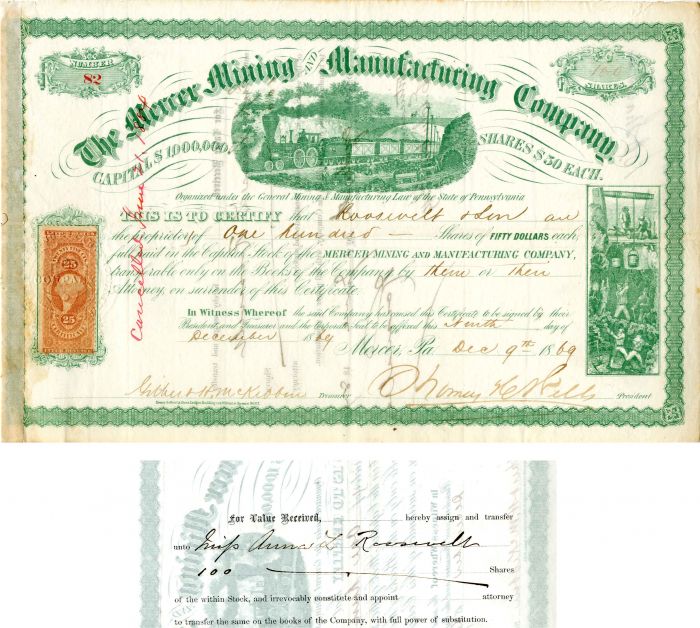 NUMBER
82
The Mercer Mining AND Manufacturing Company.
SHARES
CAPITAL $1000,000.
SHARES $50 EACH.
Organized under the General Mining & Manufacturing Law of the State of Pennsylvania
THIS IS TO CERTIFY that Roosevelt & Son are
the proprietors of One hundred — Shares of FIFTY DOLLARS each,
full paid in the Capital Stock of the MERCER MINING AND MANUFACTURING COMPANY,
transferable only on the Books of the Company by them or their
Attorney, on surrender of this Certificate.
In Witness Whereof the said Company has caused this Certificate to be signed by their
President and Treasurer and the Corporate Seal to be affixed this Ninth day of
December 1869 Mercer, Pa Dec 9th 1869
Treasurer Thomas President
25
25
CERTIFICATE
Cancelled
For Value Received, hereby assign and transfer
unto Miss Anna L Roosevelt
100 Shares
of the within Stock, and irrevocably constitute and appoint attorney
to transfer the same on the books of the Company, with full power of substitution.